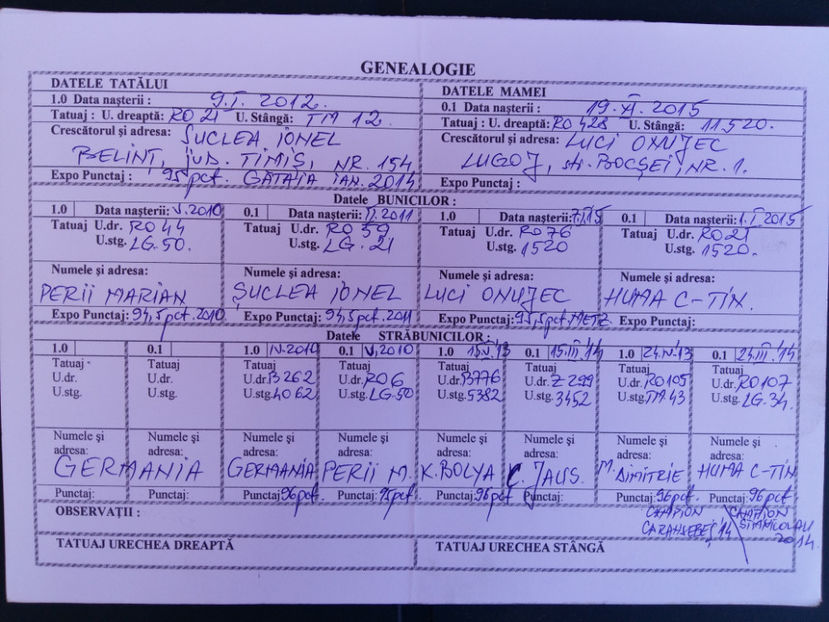 GENEALOGIE
DATELE TATĂLUI
1.0 Data nașterii : 9.I. 2012.
Tatuaj : U. dreaptă: RO 21 U. Stângă: TM 12.
Crescătorul și adresa: ȘUCLEA IONEL
BELINȚ, jud. TIMIȘ, NR. 154
Expo Punctaj : 95 pct. GĂTAIA IAN. 2014
DATELE MAMEI
0.1 Data nașterii : 19. XI. 2015
Tatuaj : U. dreaptă: RO 428 U. Stângă: 11520.
Crescătorul și adresa: LUCI ONUȚEC
LUGOJ, str. BOCȘEI, NR. 1.
Expo Punctaj :
Datele BUNICILOR :
1.0 Data nașterii: V.2010 0.1 Data nașterii: II.2011 1.0 Data nașterii: 0.1 Data nașterii: 1.I.2015
Tatuaj U.dr. RO 44 Tatuaj U.dr. RO 59 Tatuaj U.dr. RO 76 Tatuaj U.dr. RO 21
U.stg. LG. 50. U.stg. LG. 21 U.stg. 1520 U.stg. 1520.
Numele și adresa: Numele și adresa: Numele și adresa: Numele și adresa:
PERII MARIAN ȘUCLEA IONEL LUCI ONUȚEC HUMA C-TIN.
Expo Punctaj: 94,5 pct. 2010 Expo Punctaj: 94,5 pct. 2011 Expo Punctaj: 95,5 pct METZ Expo Punctaj:
Datele STRĂBUNICILOR :
1.0 0.1 1.0 IV.2010 0.1 V.2010 1.0 0.1 15.III.'14 1.0 24.IV.'13 0.1 21.III.'14
Tatuaj Tatuaj Tatuaj Tatuaj Tatuaj Tatuaj Tatuaj Tatuaj
U.dr. U.dr. U.dr. B262 U.dr. RO 6 U.dr. B776 U.dr. Z 299 U.dr. RO105 U.dr. RO107
U.stg. U.stg. U.stg. 4062 U.stg. LG.50 U.stg. 5382 U.stg. 3452 U.stg. TM 43 U.stg. LG. 34.
Numele și Numele și Numele și Numele și Numele și Numele și Numele și Numele și
adresa: adresa: adresa: adresa: adresa: adresa: adresa: adresa:
GERMANIA GERMANIA PERII M. K. BOLYA C. JAUS. M. DIMITRIE HUMA C-TIN
Punctaj: Punctaj: Punctaj: 96 pct. Punctaj: 95 pct. Punctaj: 96 pct Punctaj: Punctaj: 96 pct. Punctaj: 96 pct.
OBSERVAȚII :
CAMPION CAMPION
CARANSEBEȘ 14 SÎNNICOLAU
2014.
TATUAJ URECHEA DREAPTĂ
TATUAJ URECHEA STÂNGĂ